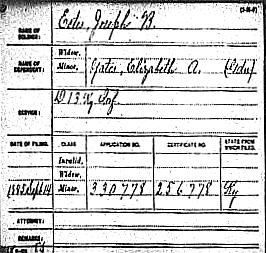 (3-14-F)
NAME OF SOLDIER: Estes, Joseph B.
NAME OF DEPENDENT: Widow,
Minor, Gates, Elizabeth A. (Gdn)
SERVICE: D 13 Ky Inf
DATE OF FILING. CLASS. APPLICATION NO. CERTIFICATE NO. STATE FROM WHICH FILED.
Invalid,
Widow,
1885 Sept 14 Minor, 330778 256778 Ky
ATTORNEY:
REMARKS: